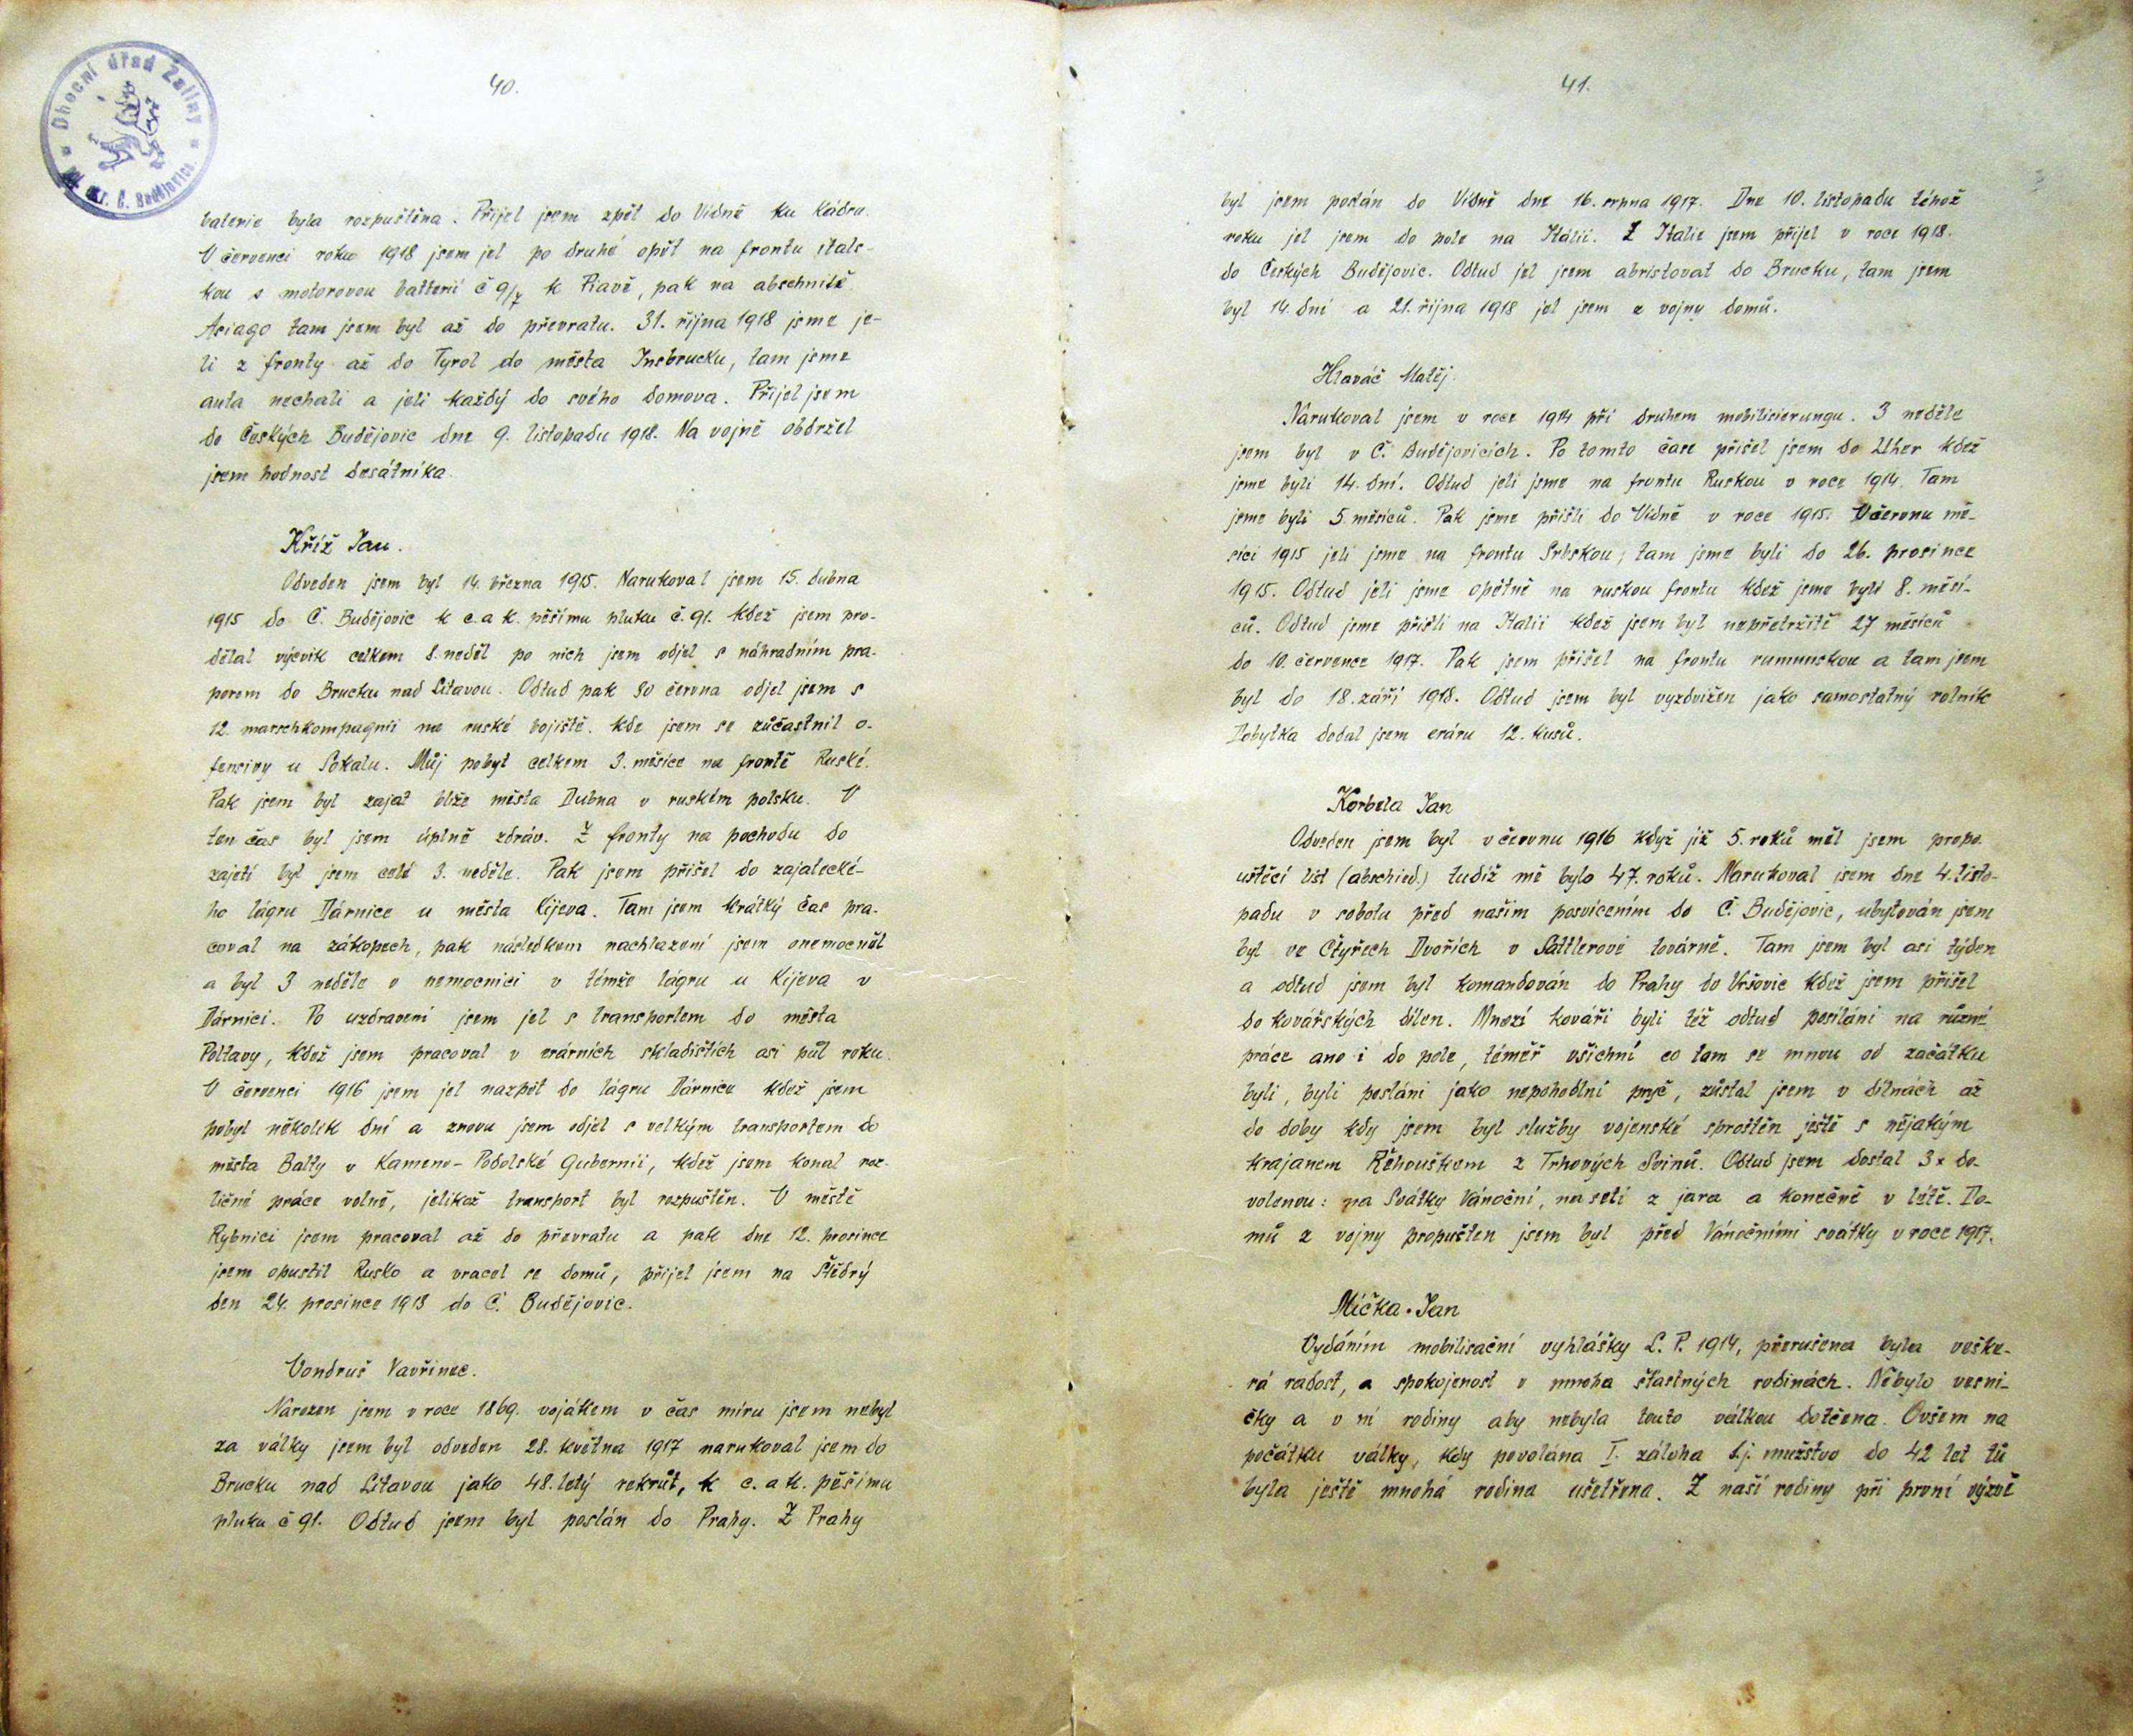 Obecní úřad Žaliny
kr. Č. Budějovice.
40.
baterie byla rozpuštěna. Přijel jsem zpět do Vídně ku kádru.
V červenci roku 1918 jsem jel po druhé opět na frontu itals-
kou s motorovou batterií č 9/7 k Piavě, pak na abschnitě
Asiago tam jsem byl až do převratu. 31. října 1918 jsme je-
li z fronty až do Tyrol do města Insbrucku, tam jsme
auta nechali a jeli každý do svého domova. Přijel jsem
do Českých Budějovic dne 9. listopadu 1918. Na vojně obdržel
jsem hodnost desátníka.
Kříž Jan.
Odveden jsem byl 14. března 1915. Narukoval jsem 15. dubna
1915 do Č. Budějovic k c. a k. pěšímu pluku č. 91. kdež jsem pro-
dělal výcvik celkem 8. neděl po nich jsem odjel s náhradním pra-
porem do Brucku nad Litavou. Odtud pak 30 června odjel jsem s
12. marschkompagnii na ruské bojiště. kde jsem se zůčastnil o-
fensivy u Sokalu. Můj pobyt celkem 3. měsíce na frontě Ruské.
Pak jsem byl zajat blíže města Dubna v ruském polsku. V
ten čas byl jsem úplně zdráv. Z fronty na pochodu do
zajetí byl jsem celé 3. neděle. Pak jsem přišel do zajatecké-
ho lágru Dárnice u města Kijeva. Tam jsem krátký čas pra-
coval na zákopech, pak následkem nachlazení jsem onemocněl
a byl 3 neděle v nemocnici v témže lágru u Kijeva v
Dárnici. Po uzdravení jsem jel s transportem do města
Poltavy, kdež jsem pracoval v erárních skladištích asi půl roku.
V červenci 1916 jsem jel nazpět do lágru Dárnice kdež jsem
pobyl několik dní a znovu jsem odjel s velkým transportem do
města Balty v Kameno-Podolské Gubernii, kdež jsem konal roz-
ličné práce volně, jelikož transport byl rozpuštěn. V městě
Rybnici jsem pracoval až do převratu a pak dne 12. prosince
jsem opustil Rusko a vracel se domů, přijel jsem na Štědrý
den 24. prosince 1918 do Č. Budějovic.
Vondruš Vavřinec.
Narozen jsem v roce 1869. vojákem v čas míru jsem nebyl
za války jsem byl odveden 28. května 1917 narukoval jsem do
Brucku nad Litavou jako 48. letý rekrůt, k c. a k. pěšímu
pluku č 91. Odtud jsem byl poslán do Prahy. Z Prahy
41.
byl jsem poslán do Vídně dne 16. srpna 1917. Dne 10. listopadu téhož
roku jel jsem do pole na Itálii. Z Italie jsem přijel v roce 1918.
do Českých Budějovic. Odtud jel jsem abristovat do Brucku, tam jsem
byl 14. dní a 21. října 1918 jel jsem z vojny domů.
Hlaváč Matěj.
Narukoval jsem v roce 1914 při druhem mobilisierungu. 3 neděle
jsem byl v Č. Budějovicích. Po tomto čase přišel jsem do Uher kdež
jsme byli 14. dní. Odtud jeli jsme na frontu Ruskou v roce 1914. Tam
jsme byli 5. měsíců. Pak jsme přišli do Vídně v roce 1915. V červnu mě-
síci 1915 jeli jsme na frontu Srbskou, tam jsme byli do 26. prosince
1915. Odtud jeli jsme opětně na ruskou frontu kdež jsme byli 8. měsí-
ců. Odtud jsme přišli na Italii kdež jsem byl nepřetržitě 27 měsíců
do 10. července 1917. Pak jsem přišel na frontu rumunskou a tam jsem
byl do 18. září 1918. Odtud jsem byl vyzdvižen jako samostatný rolník
Dobytka dodal jsem eráru 12. kusů.
Korbela Jan
Odveden jsem byl v červnu 1916 když již 5. roků měl jsem propo-
uštěcí list (abschied.) tudíž mě bylo 47. roků. Narukoval jsem dne 4. listo-
padu v sobotu před naším posvícením do Č. Budějovic, ubytován jsem
byl ve Čtyřech Dvořích v Sattlerově továrně. Tam jsem byl asi týden
a odtud jsem byl komandován do Prahy do Vršovic kdež jsem přišel
do kovářských dílen. Mnozí kováři byli též odtud posíláni na různé
práce ano i do pole, téměř všichni co tam se mnou od začátku
byli, byli posláni jako nepohodlní pryč, zůstal jsem v dílnách až
do doby kdy jsem byl služby vojenské sproštěn ještě s nějakým
krajanem Řehouškem z Trhových Svinů. Odtud jsem dostal 3x do-
volenou: na Svátky Vánoční, na setí z jara a konečně v létě. Do-
mů z vojny propušten jsem byl před Vánočními svátky v roce 1917.
Mička. Jan
Vydáním mobilisační vyhlášky L. P. 1914, přerušena byla veške-
rá radost, a spokojenost v mnoha šťastných rodinách. Nebylo vesni-
čky a v ní rodiny aby nebyla touto válkou dotčena. Ovšem na
počátku války, kdy povolána I. záloha t.j. mužstvo do 42 let tů
byla ještě mnohá rodina ušetřena. Z naší rodiny při první výzvě